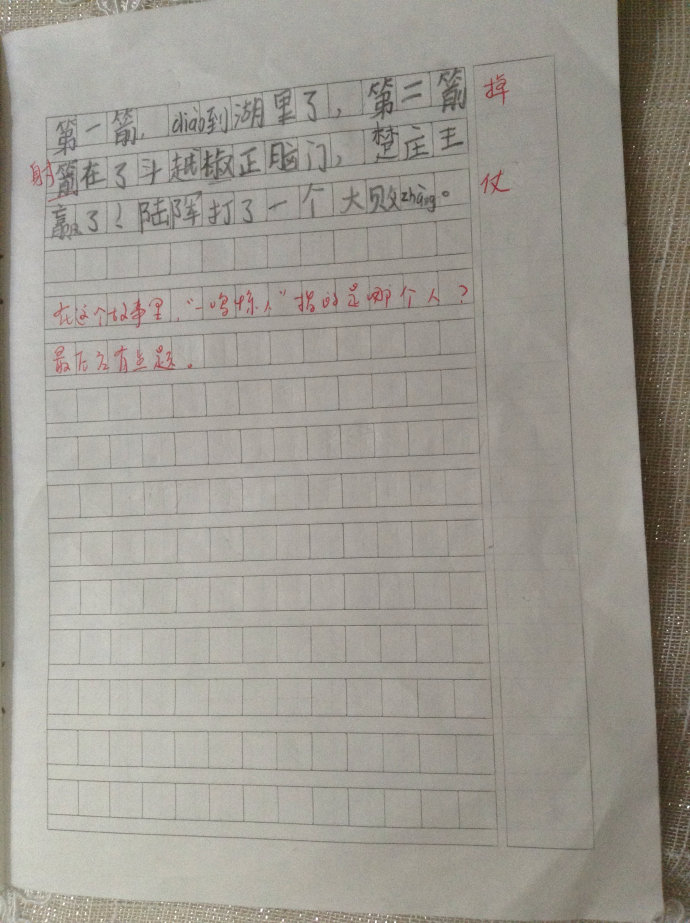 第一箭,diao到湖里了,第二箭 掉
射箭在了斗越椒正脑门,楚庄王
赢了!陆军打了一个大败zhàng。 仗
在这个故事里,“一鸣惊人”指的是哪个人?
最后应有点题。